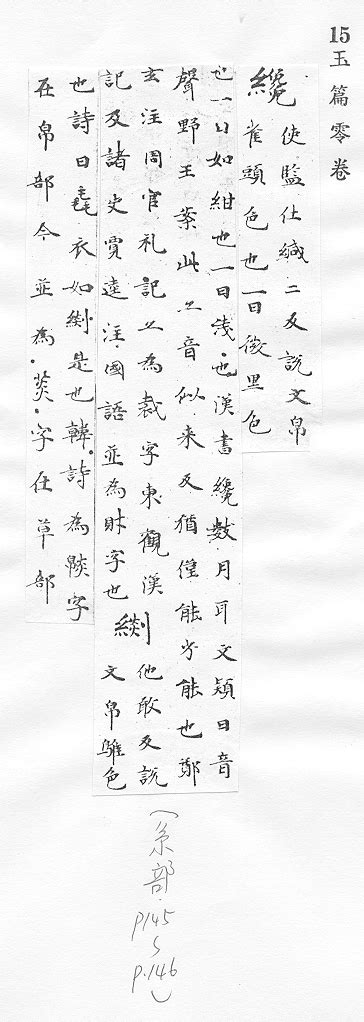 15 玉篇零卷
纔 使監仕緘二反說文帛
雀頭色也一曰微黑色
也一以如紺也一曰淺也漢書纔數月耳文穎曰音
聲野王案此亡音似来反猶僅能少能也鄭
玄注周官礼記亡為裁字東觀漢
記及諸史賈逵注國語並為財字也
𦃖 他敢反說
文帛騅色
也詩曰毳衣如𦃖是也韓詩為字
在帛部今並為菼字在草部
(糸部.P145〜P.146)